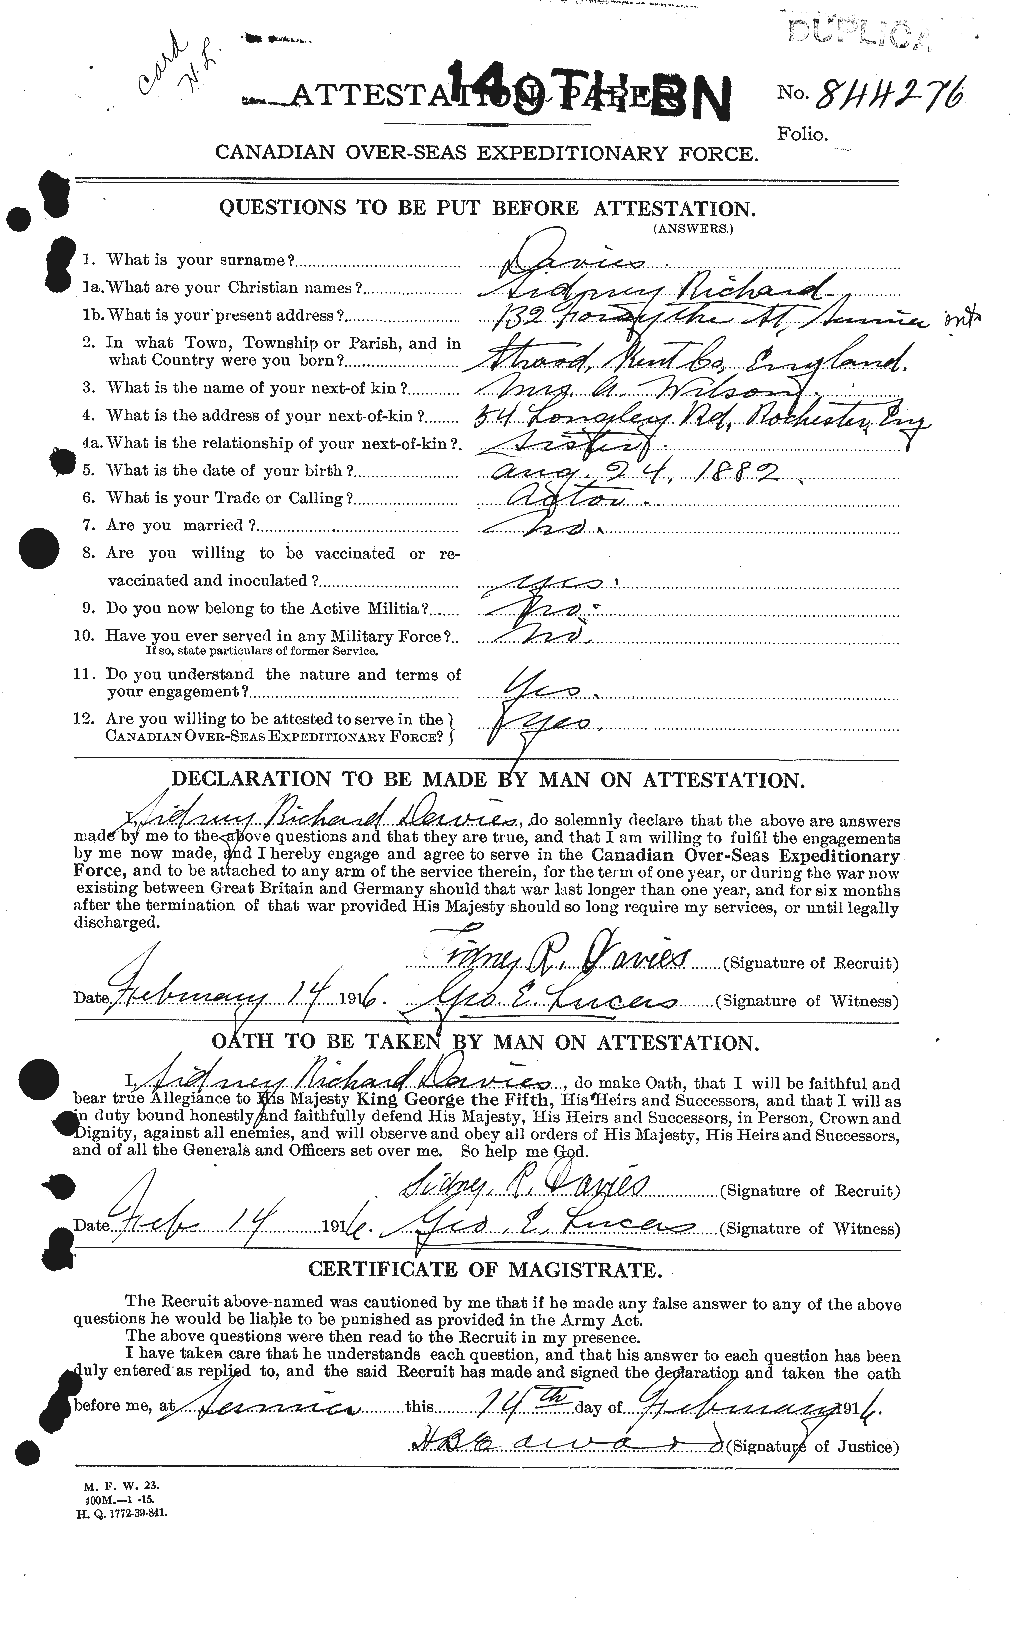 DUPLICA
card
H.L.
149TH BN
ATTESTATION PAPER
No. 844276
Folio.
CANADIAN OVER-SEAS EXPEDITIONARY FORCE.
QUESTIONS TO BE PUT BEFORE ATTESTATION.
(ANSWERS.)
1. What is your surname? Davies
1a. What are your Christian names? Sidney Richard
1b. What is your present address? 132 Forsythe St, Sarnia ont
2. In what Town, Township or Parish, and in
what Country were you born? Strood, Kent Co, England.
3. What is the name of your next-of kin? Mrs. A. Wilson
4. What is the address of your next-of-kin? 54 Longley Rd, Rochester, Eng
4a. What is the relationship of your next-of-kin? Sister
5. What is the date of your birth? Aug. 24, 1882
6. What is your Trade or Calling? Actor
7. Are you married? No.
8. Are you willing to be vaccinated or re-
vaccinated and inoculated? Yes.
9. Do you now belong to the Active Militia? No.
10. Have you ever served in any Military Force? No.
If so, state particulars of former Service.
11. Do you understand the nature and terms of
your engagement? Yes.
12. Are you willing to be attested to serve in the
CANADIAN OVER-SEAS EXPEDITIONARY FORCE? Yes.
DECLARATION TO BE MADE BY MAN ON ATTESTATION.
I, Sidney Richard Davies, do solemnly declare that the above are answers
made by me to the above questions and that they are true, and that I am willing to fulfil the engagements
by me now made, and I hereby engage and agree to serve in the Canadian Over-Seas Expeditionary
Force, and to be attached to any arm of the service therein, for the term of one year, or during the war now
existing between Great Britain and Germany should that war last longer than one year, and for six months
after the termination of that war provided His Majesty should so long require my services, or until legally
discharged.
Sidney R. Davies (Signature of Recruit)
Date February 14 1916. Geo. E. Lucas (Signature of Witness)
OATH TO BE TAKEN BY MAN ON ATTESTATION.
I, Sidney Richard Davies, do make Oath, that I will be faithful and
bear true Allegiance to His Majesty King George the Fifth, His Heirs and Successors, and that I will as
in duty bound honestly and faithfully defend His Majesty, His Heirs and Successors, in Person, Crown and
Dignity, against all enemies, and will observe and obey all orders of His Majesty, His Heirs and Successors,
and of all the Generals and Officers set over me. So help me God.
Sidney. R. Davies (Signature of Recruit)
Date Feb 14 1916. Geo. E. Lucas (Signature of Witness)
CERTIFICATE OF MAGISTRATE.
The Recruit above-named was cautioned by me that if he made any false answer to any of the above
questions he would be liable to be punished as provided in the Army Act.
The above questions were then read to the Recruit in my presence.
I have taken care that he understands each question, and that his answer to each question has been
duly entered as replied to, and the said Recruit has made and signed the declaration and taken the oath
before me, at Sarnia this 14th day of February 1916.
(Signature of Justice)
M. F. W. 23.
400M.—1 -15.
H. Q. 1772-39-841.